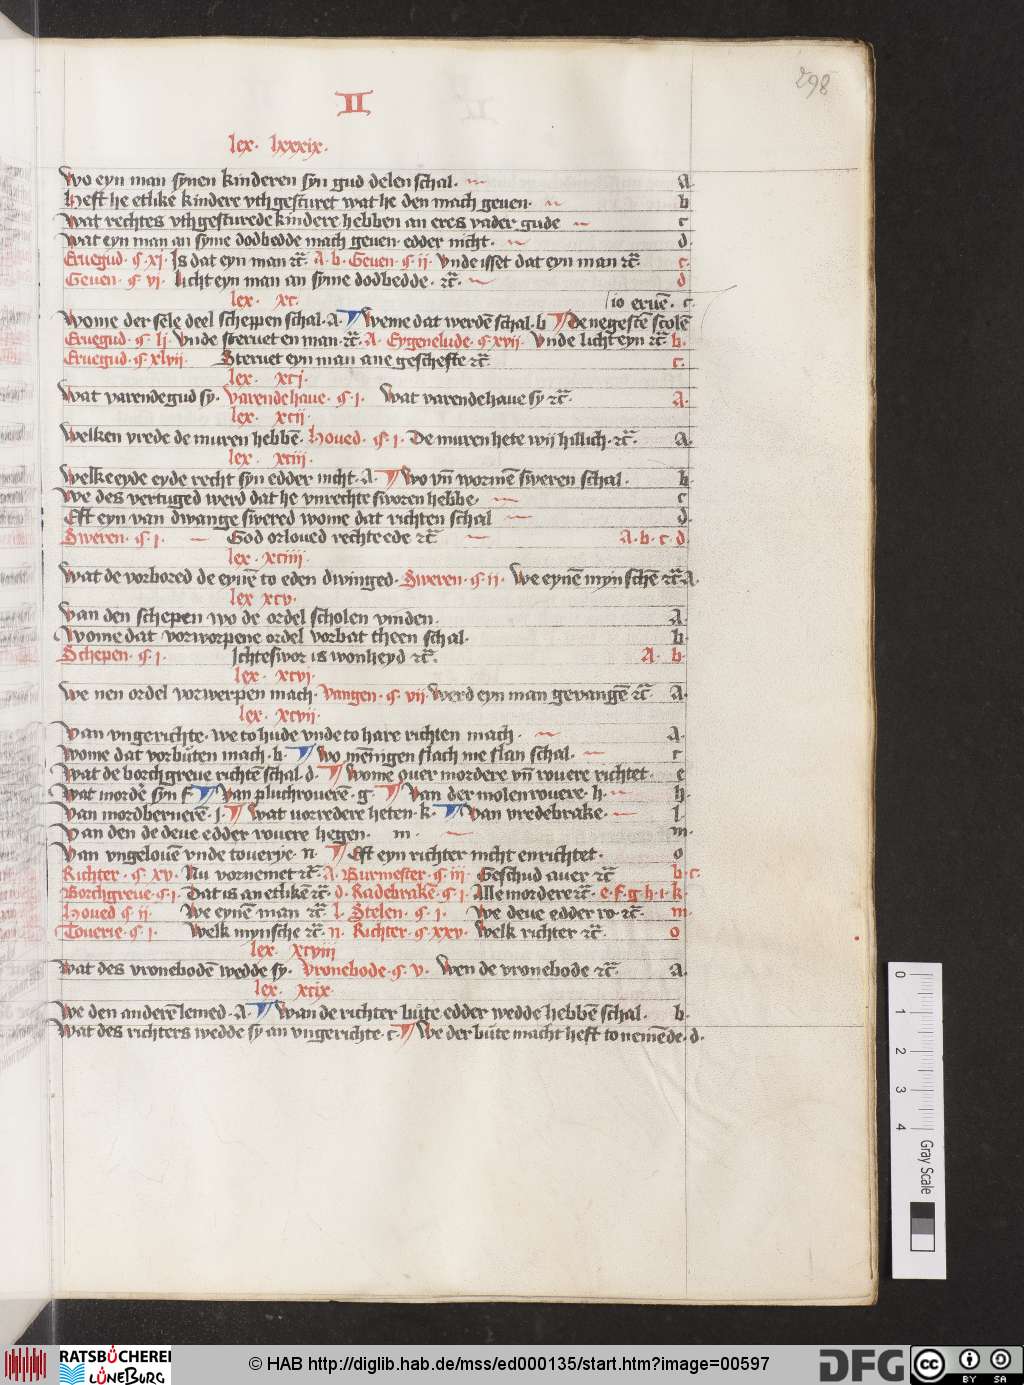 298
II
lex · lxxxix ·
Wo eyn man synen kinderen syn gud delen schal · a
Heft he etlike kindere vthgesturet wat he den mach geuen · b
Wat rechtes vthgesturede kindere hebben an eres vader gude c
Wat eyn man an syme dodbedde mach geuen edder nicht · d
Eruegud · ꝯ · xi · Is dat eyn man ꝛc̄ · A · b · Geuen · ꝯ · ii · Vnde isset dat eyn man ꝛc̄ c ·
Geuen · ꝯ · vi · Licht eyn man an syme dodbedde · ꝛc̄ · d
lex · xc · io eruē · c
Wome der sele deel scheppen schal · A · ¶ Weme dat werdē schal · b ¶ De negestē scolē
Eruegud · ꝯ · li · Vnde steruet en man · ꝛc̄ · A · Eygenelude · ꝯ · xvii · Vnde licht eyn ꝛc̄ b ·
Eruegud · ꝯ · xlvii · Steruet eyn man ane geschefte ꝛc̄ c ·
lex · xci ·
Wat varendegud sy · Varendehaue · ꝯ · i · Wat varendehaue sy ꝛc̄ · A ·
lex · xcii ·
Welken vrede de muren hebbē · Houed · ꝯ · i · De muren hete wij hillich · ꝛc̄ · A ·
lex · xciii ·
Welke eyde eyde recht syn edder nicht · A · ¶ Wo vn̄ wormē sweren schal · b
We des vertuged werd dat he vnrechte sworen hebbe · c
Eft eyn van dwange swered wome dat richten schal d ·
Sweren · ꝯ · i · God orloued rechte ede ꝛc̄ A · b · c · d
lex · xciiii ·
Wat de vorbored de eynē to eden dwinged · Sweren · ꝯ · ii · We eynē mynschē ꝛc̄ A ·
lex xcv ·
Van den schepen wo de ordel scholen vinden · A
Wome dat vorworpene ordel vorbat theen schal · b ·
Schepen · ꝯ · i · Ichteswor is wonheyd ꝛc̄ · A · b ·
lex · xcvi ·
We nen ordel vorwerpen mach · Vangen · ꝯ · vii · Werd eyn man gevangē ꝛc̄ A ·
lex · xcvii ·
Van vngerichte · we to hude vnde to hare richten mach · A ·
Wome dat vorbůten mach · b · ¶ Wo mēnigen slach me slan schal · c
Wat de borchgreue richtē schal · d · ¶ Wome ouer mordere vn̄ rouere richtet · e
Wat mordē syn f ¶ Van pluchrouerē · g · ¶ Van der molen rouere · h · h ·
Van mordbernerē · i · ¶ Wat vorredere heten · k · ¶ Van vredebrake · l ·
Van den de deue edder rouere hegen · m · m ·
Van vngelouē vnde touerye · n · ¶ Eft eyn richter nicht enrichtet · o
Richter · ꝯ · xv · Nu vornemet ꝛc̄ · A · Burmester · ꝯ · iii · Geschud auer ꝛc̄ b · c ·
Borchgreue · ꝯ · i · Dat is an etlikē ꝛc̄ · d · Radebrakē · ꝯ · i · Alle mordere ꝛc̄ · e · f · g · h · i · k ·
Houed ꝯ · ii · We eynē man ꝛc̄ · l · Stelen · ꝯ · i · We deue edder ro · ꝛc̄ · m ·
Touerie · ꝯ · i · Welk mynsche ꝛc̄ · n · Richter · ꝯ · xxv · Welk richter ꝛc̄ · o
lex · xcviii
Wat des vronebodē wedde sy · Vronebode · ꝯ · v · Wen de vronebode ꝛc̄ · A ·
lex · xcix ·
We den anderē lemed · A · ¶ Wan de richter bůte edder wedde hebbē schal · b ·
Wat des richters wedde sy an vngerichte · c · ¶ We der bůte macht heft to nemēde · d ·
0 1 2 3 4 Gray Scale
RATSBÜCHEREI LÜNEBURG
© HAB http://diglib.hab.de/mss/ed000135/start.htm?image=00597
DFG
cc BY SA